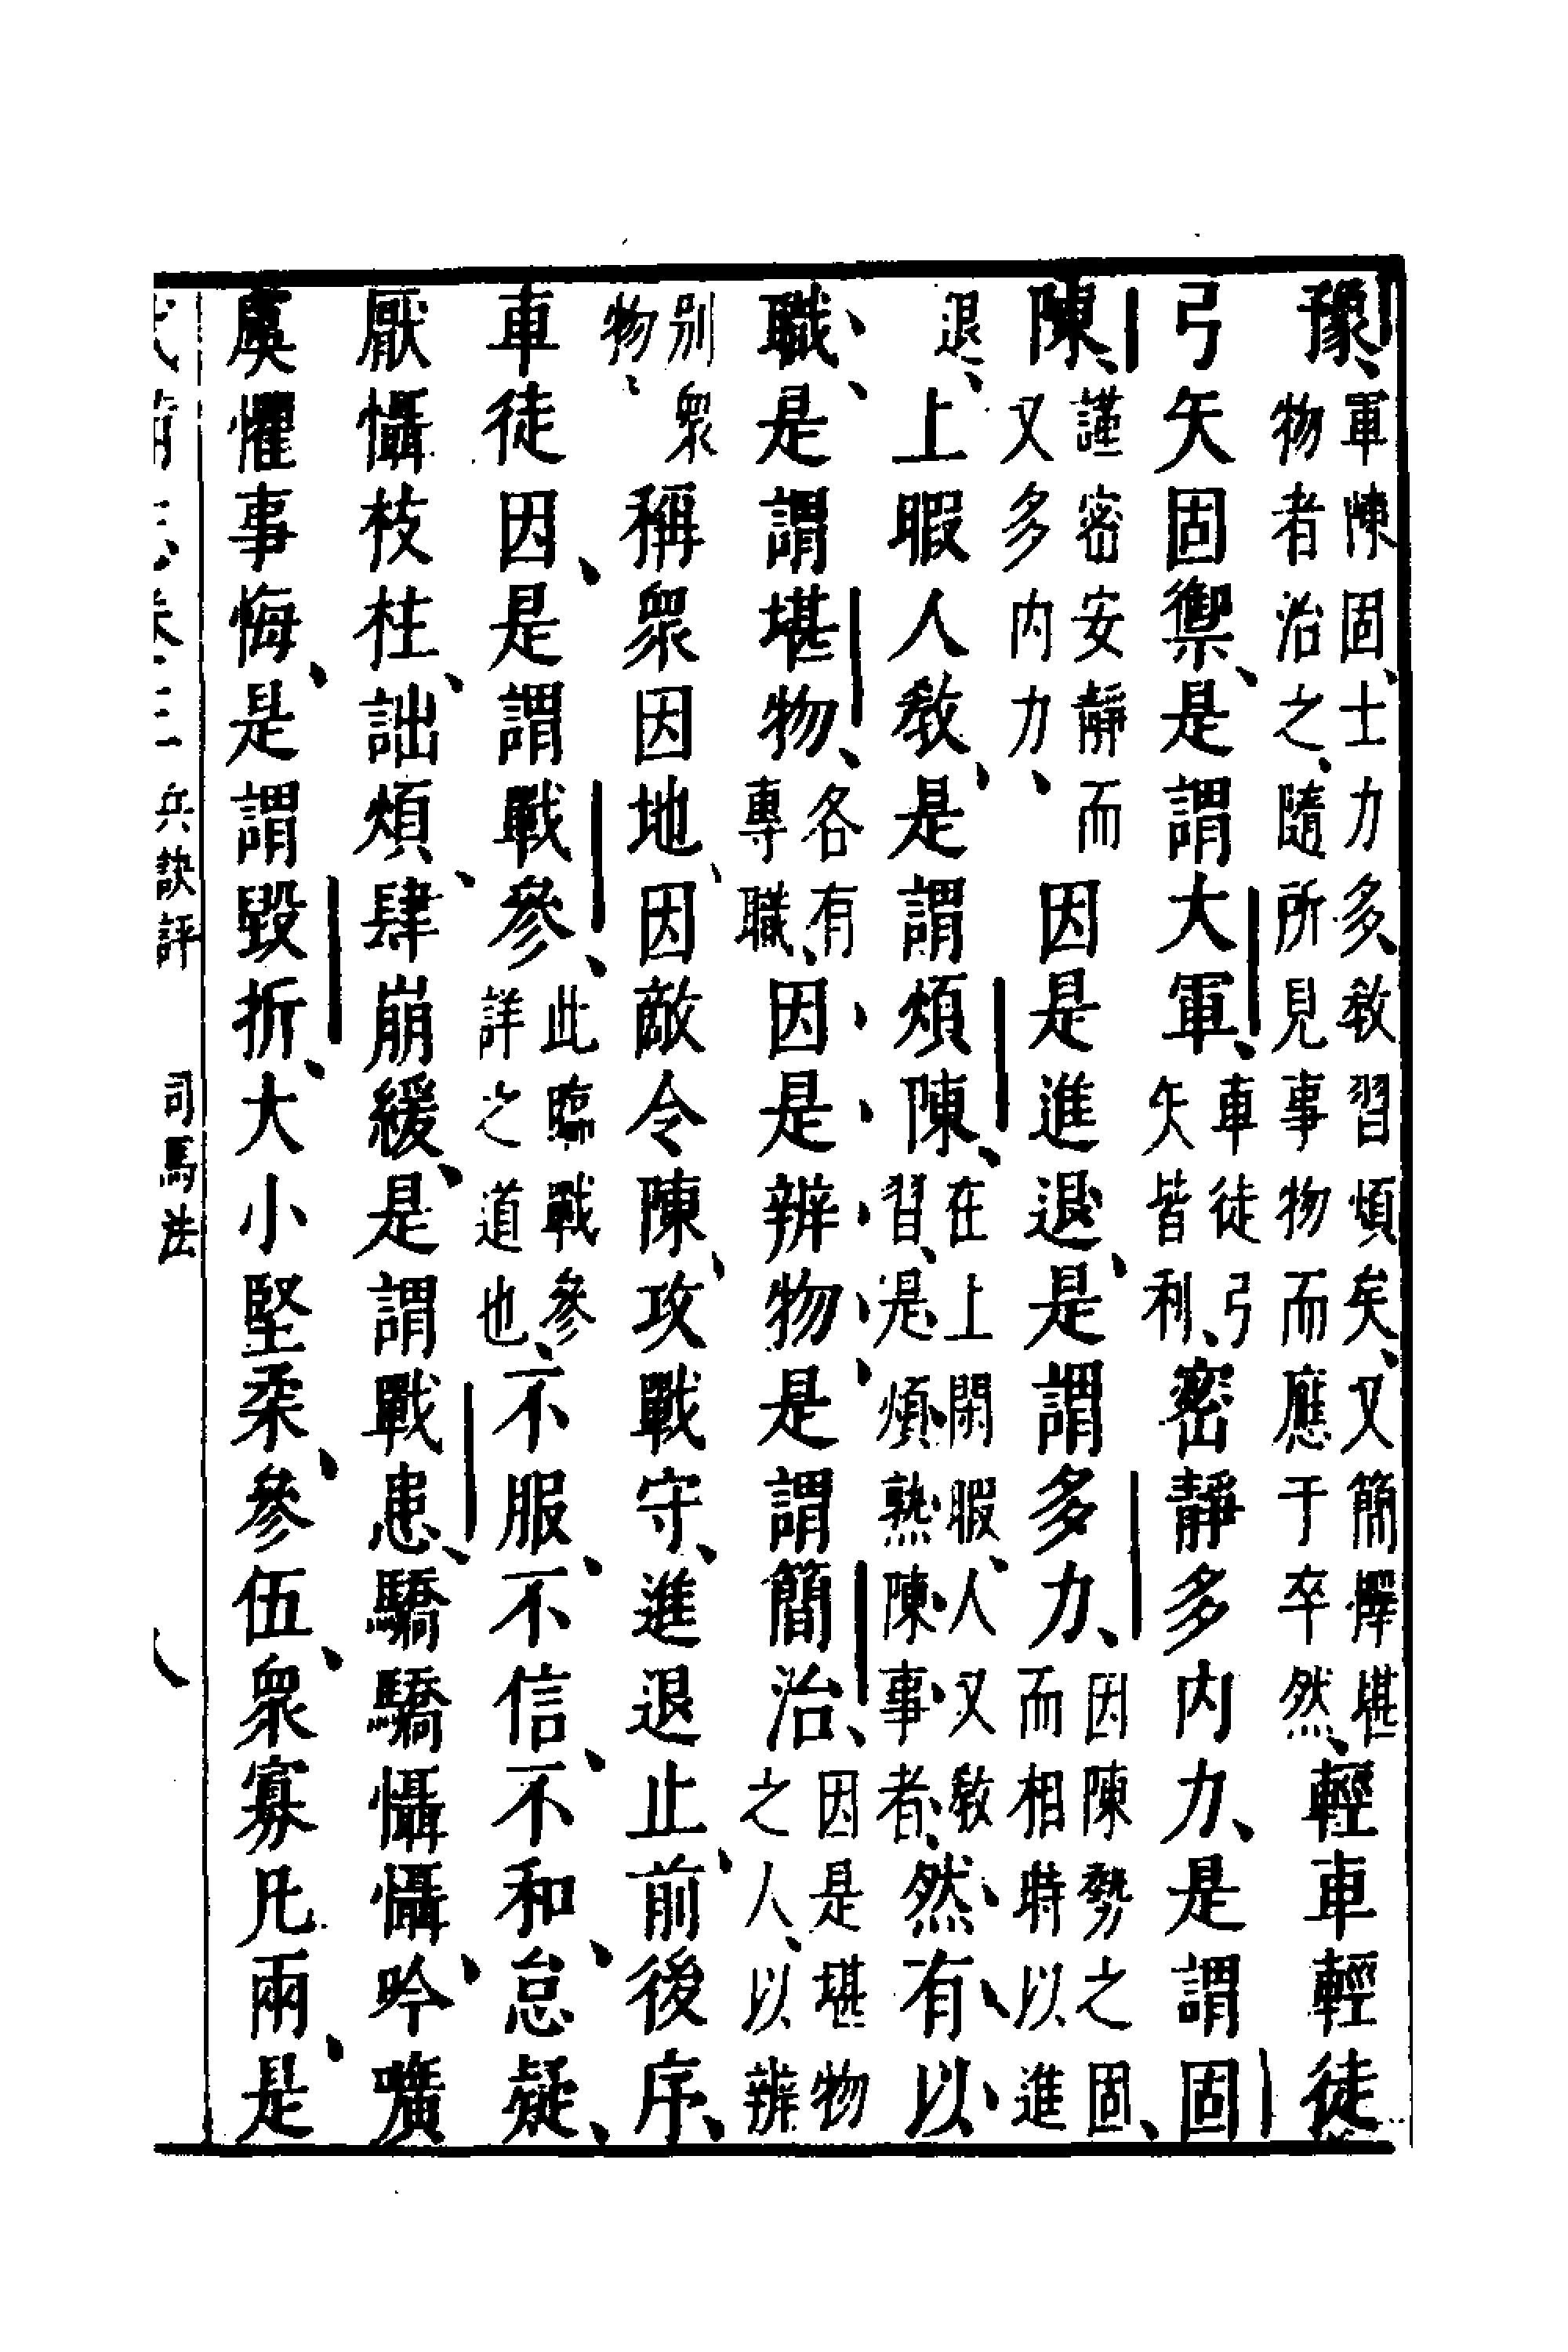 豫軍陳固士力多敎習煩矣又簡擇堪物者治之隨所見事物而應于卒然輕車輕徒
弓矢固禦是謂大軍車徒弓矢皆利密靜多内力是謂固
陳謹密安靜而又多内力因是進退是謂多力因陳勢之固而相時以進
退上暇人敎是謂煩陳在上閑暇人又敎習是煩熟陳事者然有以
職是謂堪物各有專職因是辨物是謂簡治因是堪物之人以辨
别衆物稱衆因地因敵令陳攻戰守進退止前後序
車徒因是謂戰參此臨戰參詳之道也不服不信不和怠疑
厭懾枝柱詘煩肆崩緩是謂戰患驕驕懾懾吟嚝
虞懼事悔是謂毀折大小堅柔參伍衆寡凡兩是
兵訣評 司馬法